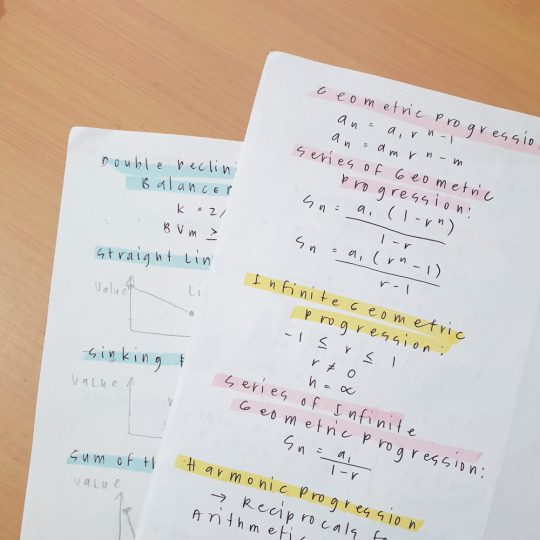 Double Declin
Balance
K = 2/
BVm ≥
straight Lin
Value
Li
sinking
Value
sum of th
value
Geometric progressio
an = a1 r n-1
an = am r n-m
series of Geometric
progression:
Sn = a1 (1-r^n)
1-r
Sn = a1 (r^n -1)
r-1
Infinite Geometric
progression:
-1 ≤ r ≤ 1
r ≠ 0
n = ∞
series of Infinite
Geometric progression:
Sn = a1
1-r
Harmonic progression
→ Reciprocals
Arithmetic